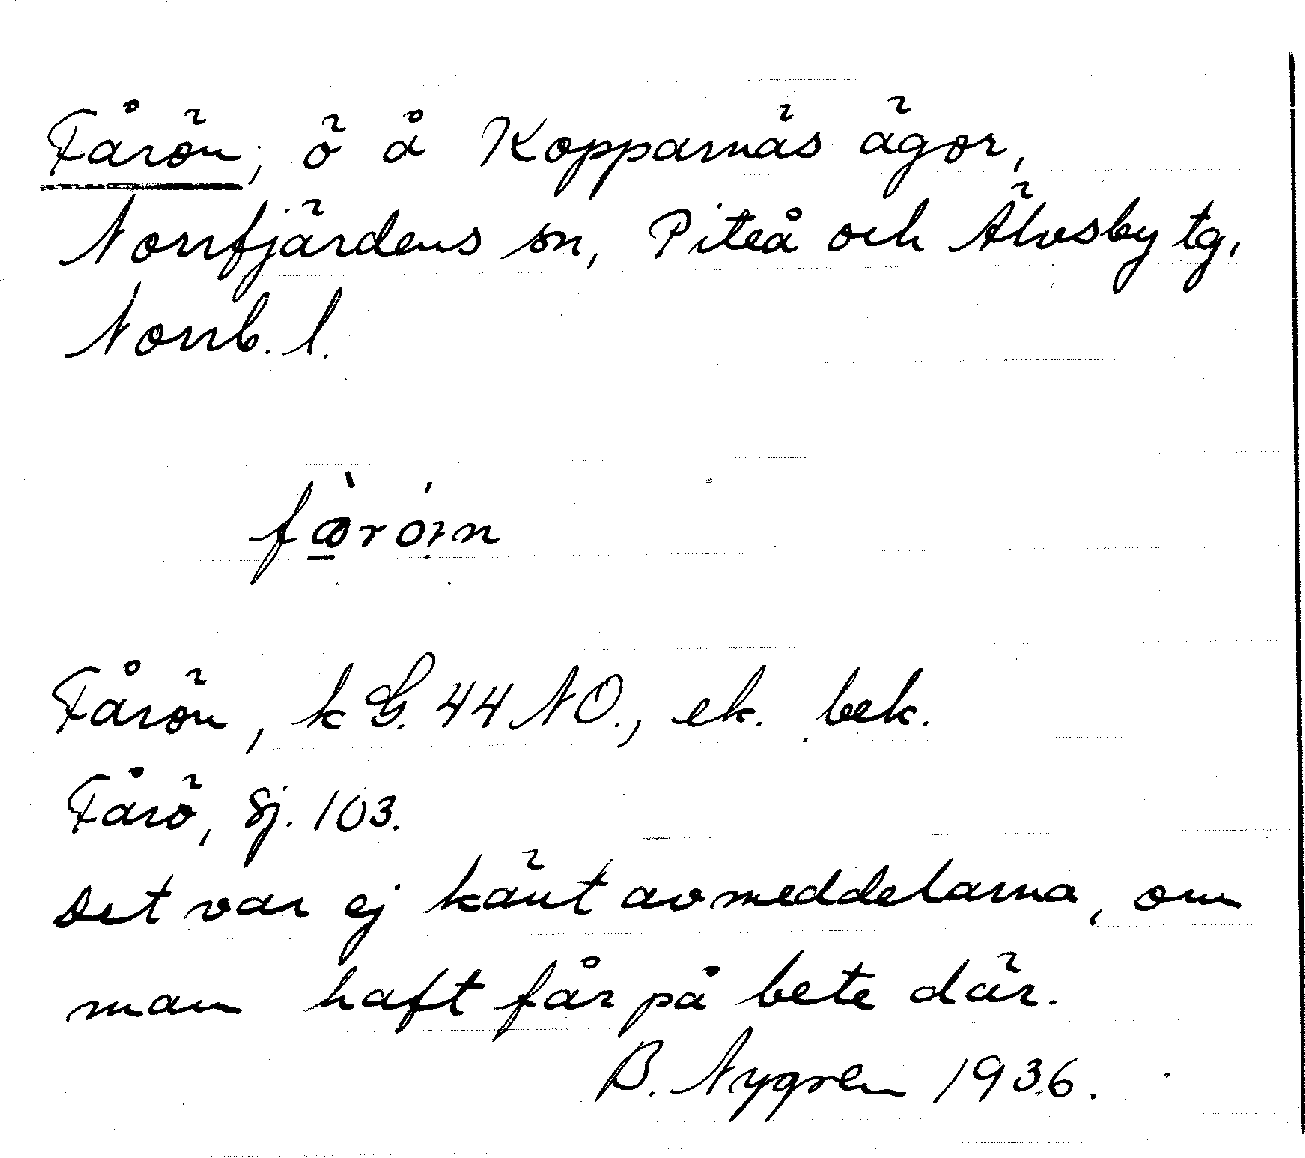 Fårön, ö å Kopparnäs ägor,
Norrfjärdens sn, Piteå och Älvsby tg.
Norrb. l.
Fårön, k G. 44 NO., ek. bek.
Fårö, Sj. 103.
Det var ej känt av meddelarna, om
man haft får på bete där.
B. Nygren 1936.